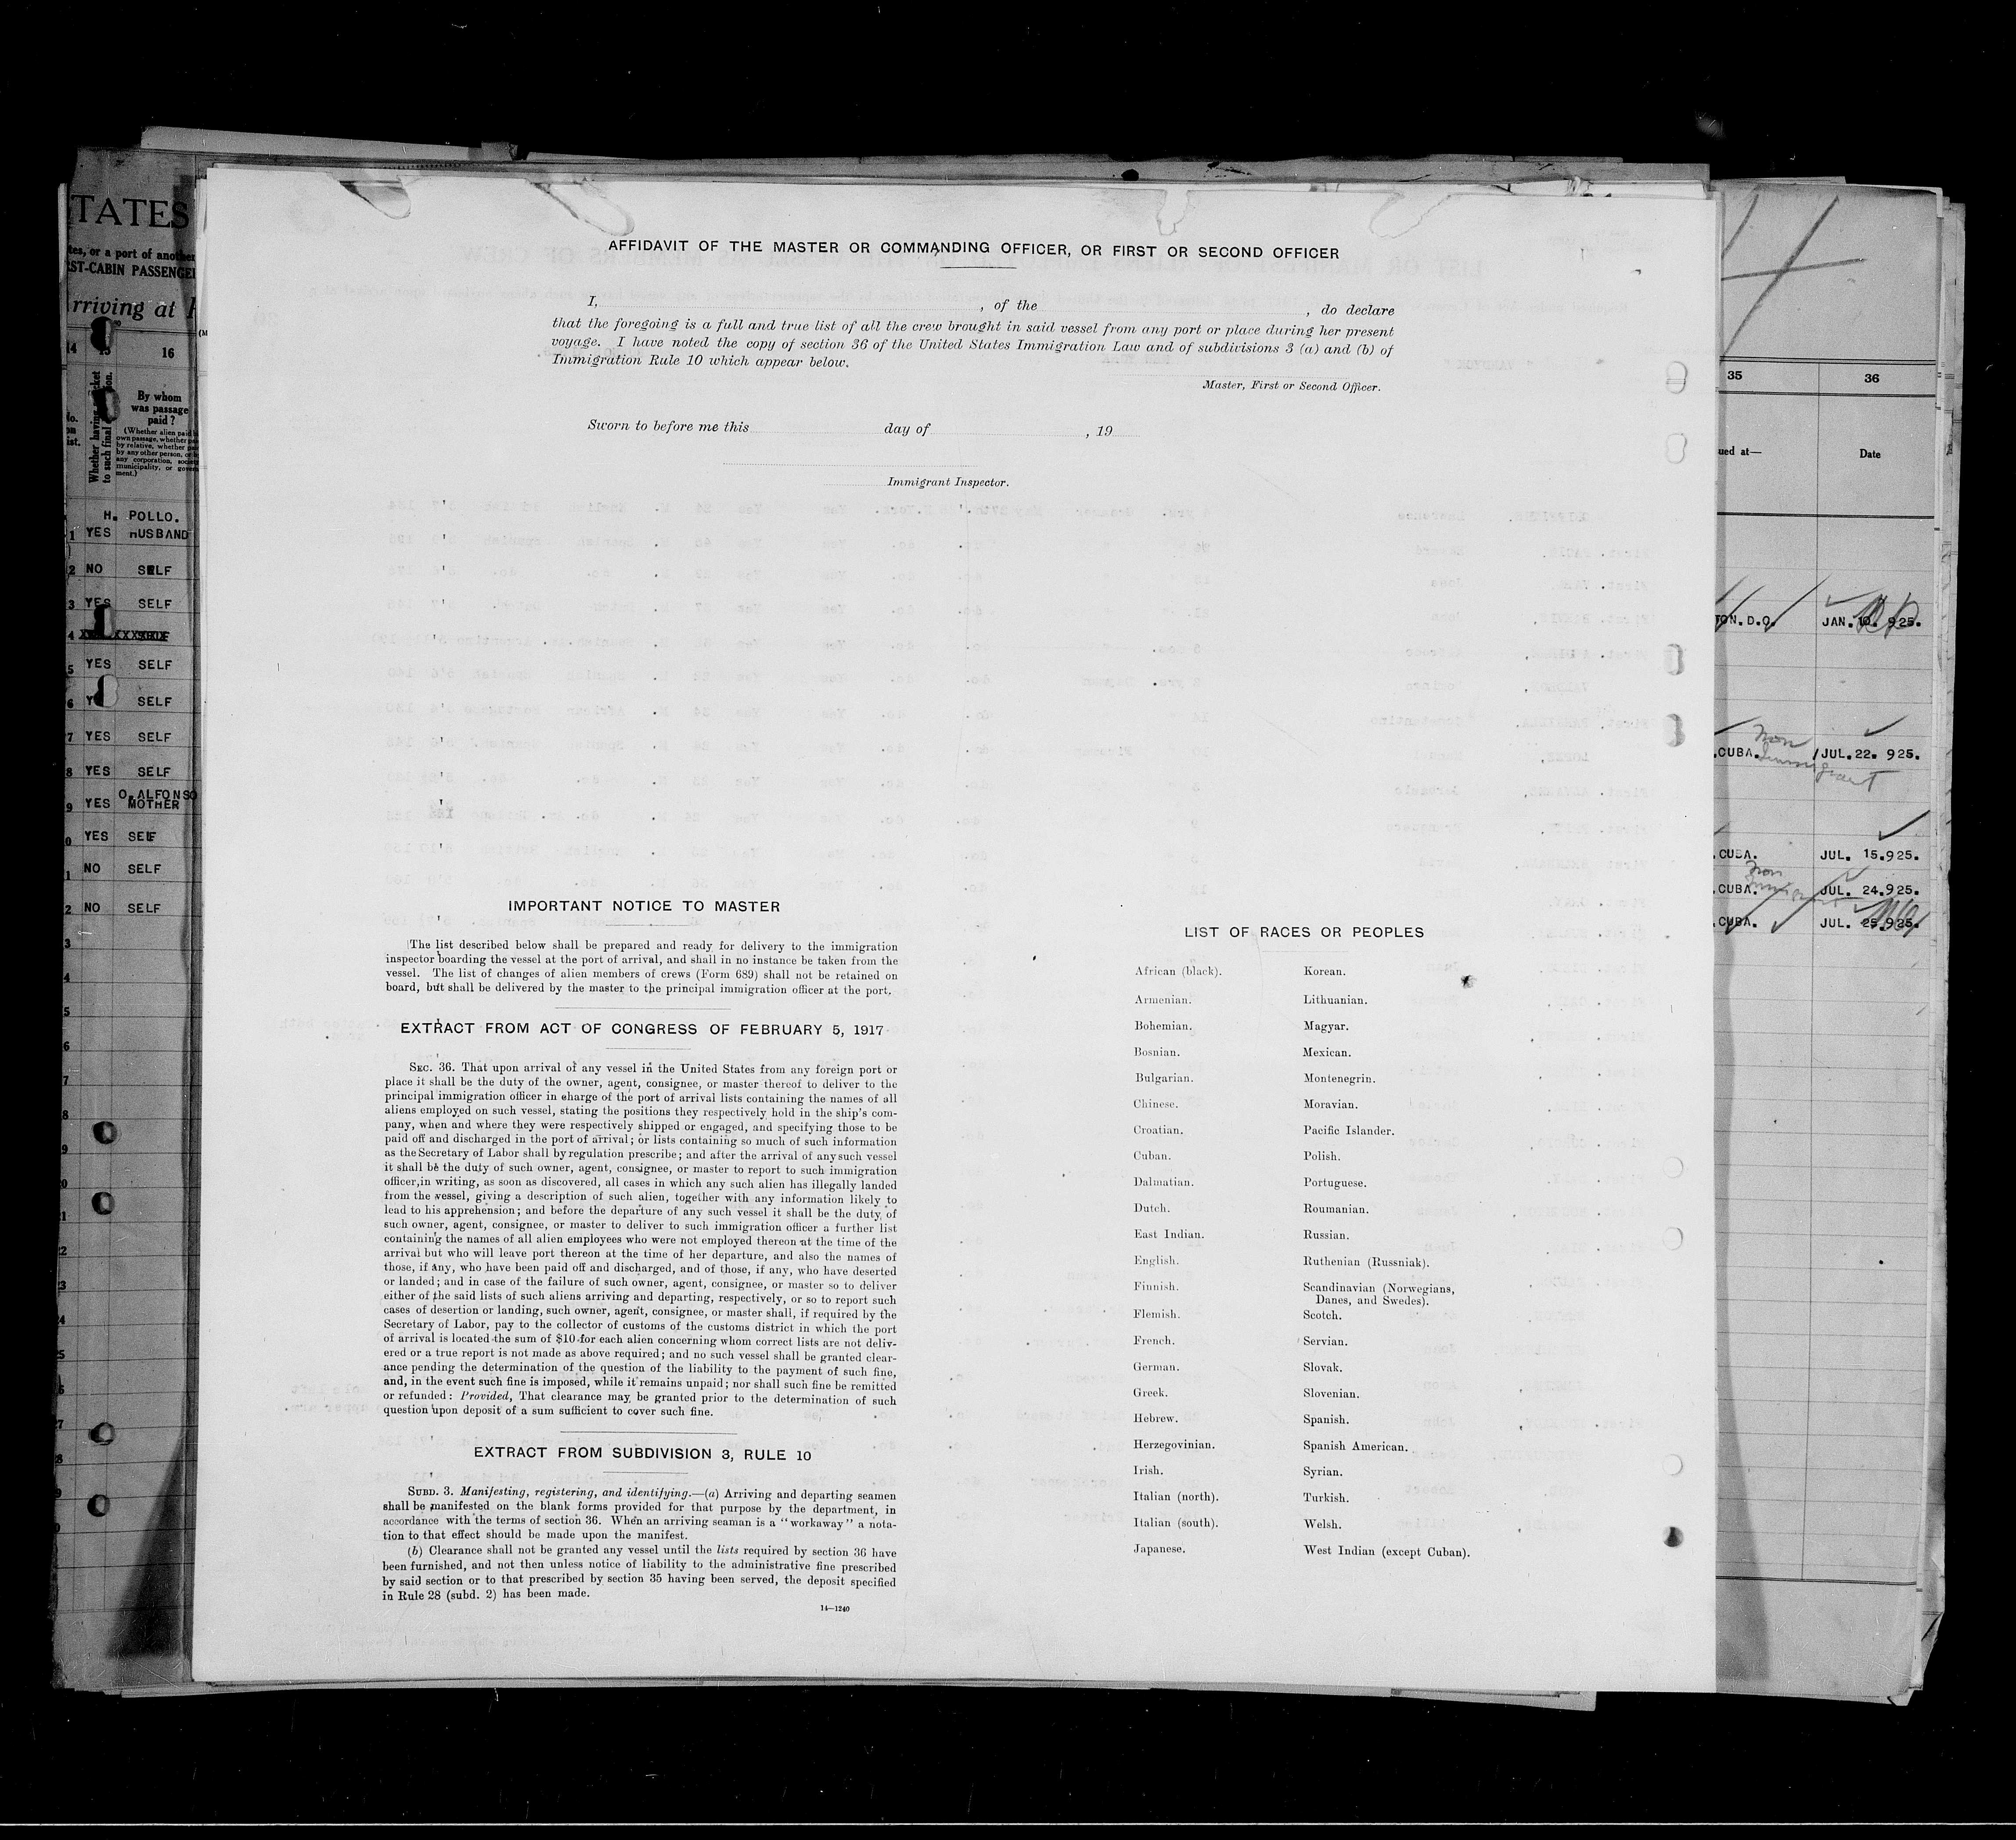 AFFIDAVIT OF THE MASTER OR COMMANDING OFFICER, OR FIRST OR SECOND OFFICER
I, , of the , do declare
that the foregoing is a full and true list of all the crew brought in said vessel from any port or place during her present
voyage. I have noted the copy of section 36 of the United States Immigration Law and of subdivisions 3 (a) and (b) of
Immigration Rule 10 which appear below.
Master, First or Second Officer.
Sworn to before me this day of , 19
Immigrant Inspector.
IMPORTANT NOTICE TO MASTER
The list described below shall be prepared and ready for delivery to the immigration
inspector boarding the vessel at the port of arrival, and shall in no instance be taken from the
vessel. The list of changes of alien members of crews (Form 689) shall not be retained on
board, but shall be delivered by the master to the principal immigration officer at the port.
EXTRACT FROM ACT OF CONGRESS OF FEBRUARY 5, 1917
SEC. 36. That upon arrival of any vessel in the United States from any foreign port or
place it shall be the duty of the owner, agent, consignee, or master thereof to deliver to the
principal immigration officer in charge of the port of arrival lists containing the names of all
aliens employed on such vessel, stating the positions they respectively hold in the ship's com-
pany, when and where they were respectively shipped or engaged, and specifying those to be
paid off and discharged in the port of arrival; or lists containing so much of such information
as the Secretary of Labor shall by regulation prescribe; and after the arrival of any such vessel
it shall be the duty of such owner, agent, consignee, or master to report to such immigration
officer, in writing, as soon as discovered, all cases in which any such alien has illegally landed
from the vessel, giving a description of such alien, together with any information likely to
lead to his apprehension; and before the departure of any such vessel it shall be the duty of
such owner, agent, consignee, or master to deliver to such immigration officer a further list
containing the names of all alien employees who were not employed thereon at the time of the
arrival but who will leave port thereon at the time of her departure, and also the names of
those, if any, who have been paid off and discharged, and of those, if any, who have deserted
or landed; and in case of the failure of such owner, agent, consignee, or master so to deliver
either of the said lists of such aliens arriving and departing, respectively, or so to report such
cases of desertion or landing, such owner, agent, consignee, or master shall, if required by the
Secretary of Labor, pay to the collector of customs of the customs district in which the port
of arrival is located the sum of $10 for each alien concerning whom correct lists are not deliv-
ered or a true report is not made as above required; and no such vessel shall be granted clear-
ance pending the determination of the question of the liability to the payment of such fine,
and, in the event such fine is imposed, while it remains unpaid; nor shall such fine be remitted
or refunded: Provided, That clearance may be granted prior to the determination of such
question upon deposit of a sum sufficient to cover such fine.
EXTRACT FROM SUBDIVISION 3, RULE 10
SUBD. 3. Manifesting, registering, and identifying.—(a) Arriving and departing seamen
shall be manifested on the blank forms provided for that purpose by the department, in
accordance with the terms of section 36. When an arriving seaman is a "workaway" a nota-
tion to that effect should be made upon the manifest.
(b) Clearance shall not be granted any vessel until the lists required by section 36 have
been furnished, and not then unless notice of liability to the administrative fine prescribed
by said section or to that prescribed by section 35 having been served, the deposit specified
in Rule 28 (subd. 2) has been made.
14—1240
LIST OF RACES OR PEOPLES
African (black).
Armenian.
Bohemian.
Bosnian.
Bulgarian.
Chinese.
Croatian.
Cuban.
Dalmatian.
Dutch.
East Indian.
English.
Finnish.
Flemish.
French.
German.
Greek.
Hebrew.
Herzegovinian.
Irish.
Italian (north).
Italian (south).
Japanese.
Korean.
Lithuanian.
Magyar.
Mexican.
Montenegrin.
Moravian.
Pacific Islander.
Polish.
Portuguese.
Roumanian.
Russian.
Ruthenian (Russniak).
Scandinavian (Norwegians,
Danes, and Swedes).
Scotch.
Servian.
Slovak.
Slovenian.
Spanish.
Spanish American.
Syrian.
Turkish.
Welsh.
West Indian (except Cuban).
TATES
tes, or a port of another
ST-CABIN PASSENGE
rriving at
16
By whom
was passage
paid?
H. POLLO.
YES HUSBAND
2 NO SELF
3 YES SELF
5 YES SELF
6 SELF
7 YES SELF
8 YES SELF
O. ALFONSO
9 YES MOTHER
YES SELF
NO SELF
NO SELF
35 36
ued at— Date
TON. D.C. JAN. 10. 925.
CUBA. JUL. 22. 925.
Non
immigrant
CUBA. JUL. 15. 925.
CUBA. JUL. 24. 925.
Non
immigrant
CUBA. JUL. 25. 925.